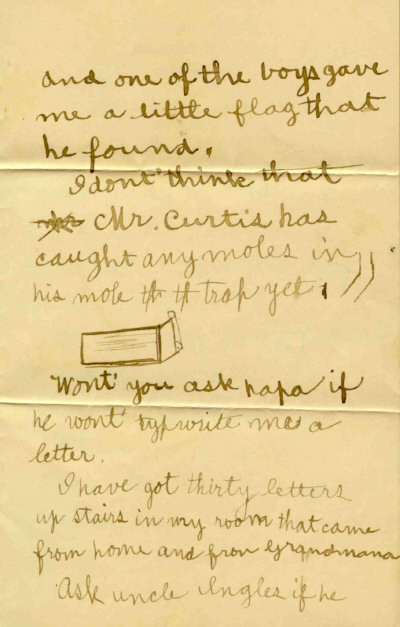 and one of the boys gave
me a little flag that
he found.
I dont' think that
Mr. Curtis has
caught any moles in
his mole trap yet.
Wont' you ask papa if
he wont' typwrite me a
letter.
I have got thirty letters
up stairs in my room that came
from home and from Grandmama
Ask uncle Ingles if he